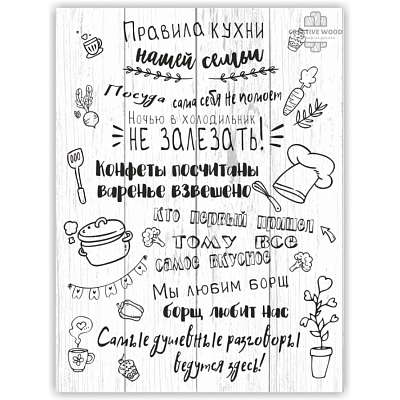 CREATIVE WOOD
Правила кухни
нашей семьи
Посуда сама себя не помоет
Ночью в холодильник
НЕ ЗАЛЕЗАТЬ!
Конфеты посчитаны
варенье взвешено
Кто первый пришел
тому все
самое вкусное
Мы любим борщ
борщ любит нас
Самые душевные разговоры
ведутся здесь!